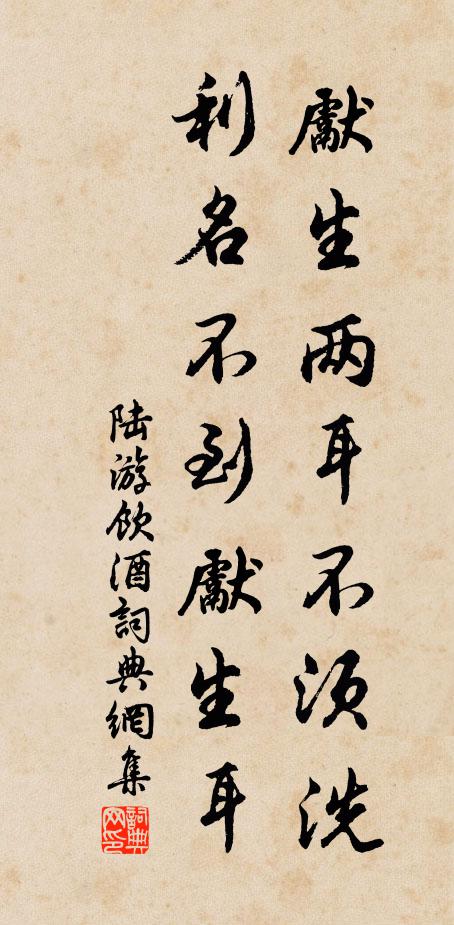 獻生两耳不須洗
利名不到獻生耳
陆游飲酒詞典網集
詞典网印